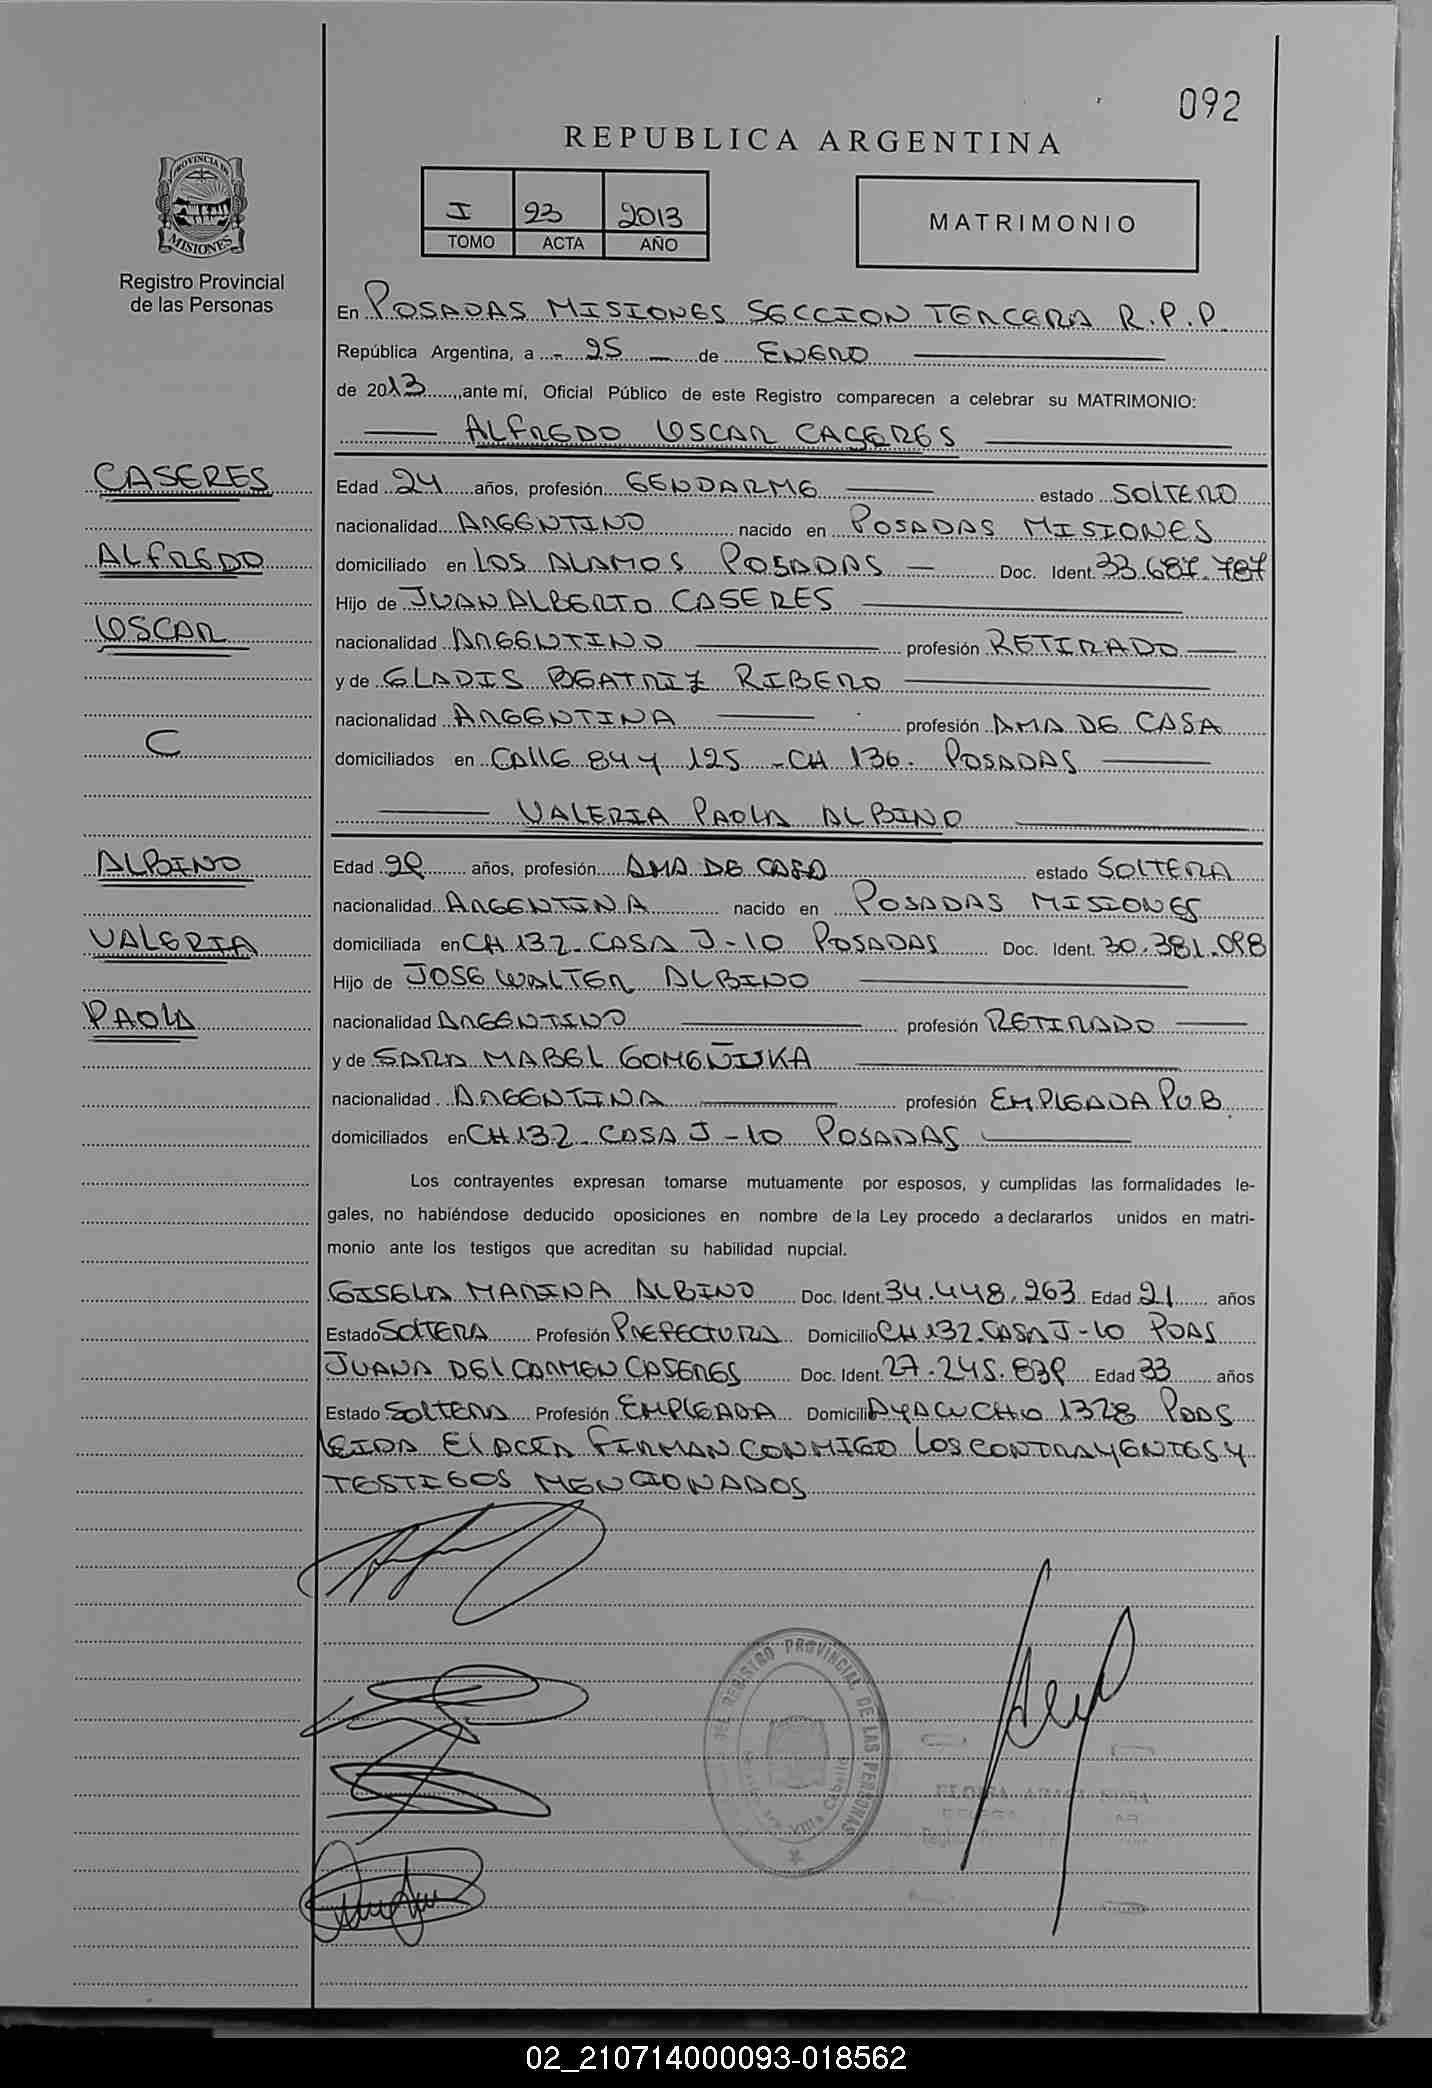 092
REPUBLICA ARGENTINA
PROVINCIA DE
MISIONES
I 23 2013
TOMO ACTA AÑO
MATRIMONIO
Registro Provincial
de las Personas
En POSADAS MISIONES SECCION TERCERA R.P.P.
República Argentina, a - 25 - de ENERO
de 2013, ante mí, Oficial Público de este Registro comparecen a celebrar su MATRIMONIO:
ALFREDO OSCAR CASERES
CASERES
Edad 24 años, profesión GENDARME estado SOLTERO
nacionalidad ARGENTINO nacido en POSADAS MISIONES
ALFREDO
domiciliado en LOS ALAMOS POSADAS Doc. Ident. 33.687.787
Hijo de JUAN ALBERTO CASERES
OSCAR
nacionalidad ARGENTINO profesión RETIRADO
y de GLADIS BEATRIZ RIBERO
nacionalidad ARGENTINA profesión AMA DE CASA
C
domiciliados en CALLE 84 Y 125 - CH 136. POSADAS
VALERIA PAOLA ALBINO
ALBINO
Edad 29 años, profesión AMA DE CASA estado SOLTERA
nacionalidad ARGENTINA nacido en POSADAS MISIONES
VALERIA
domiciliada en CH 132 CASA J-10 POSADAS Doc. Ident. 30.381.098
Hijo de JOSE WALTER ALBINO
PAOLA
nacionalidad ARGENTINO profesión RETIRADO
y de SARA MABEL
nacionalidad ARGENTINA profesión EMPLEADA PUB.
domiciliados en CH 132 CASA J-10 POSADAS
Los contrayentes expresan tomarse mutuamente por esposos, y cumplidas las formalidades le-
gales, no habiéndose deducido oposiciones en nombre de la Ley procedo a declararlos unidos en matri-
monio ante los testigos que acreditan su habilidad nupcial.
GISELA MARINA ALBINO Doc. Ident. 34.448.263 Edad 21 años
Estado SOLTERA Profesión PREFECTURA Domicilio CH 132 CASA J-10 PDAS
JUANA DEL CARMEN CASERES Doc. Ident. 27.245.839 Edad 33 años
Estado SOLTERA Profesión EMPLEADA Domicili AYACUCHO 1328 PDAS
LEIDA EL ACTA FIRMAN CONMIGO LOS CONTRAYENTES Y
TESTIGOS MENCIONADOS
DEL REGISTRO PROVINCIAL DE LAS PERSONAS
02_210714000093-018562